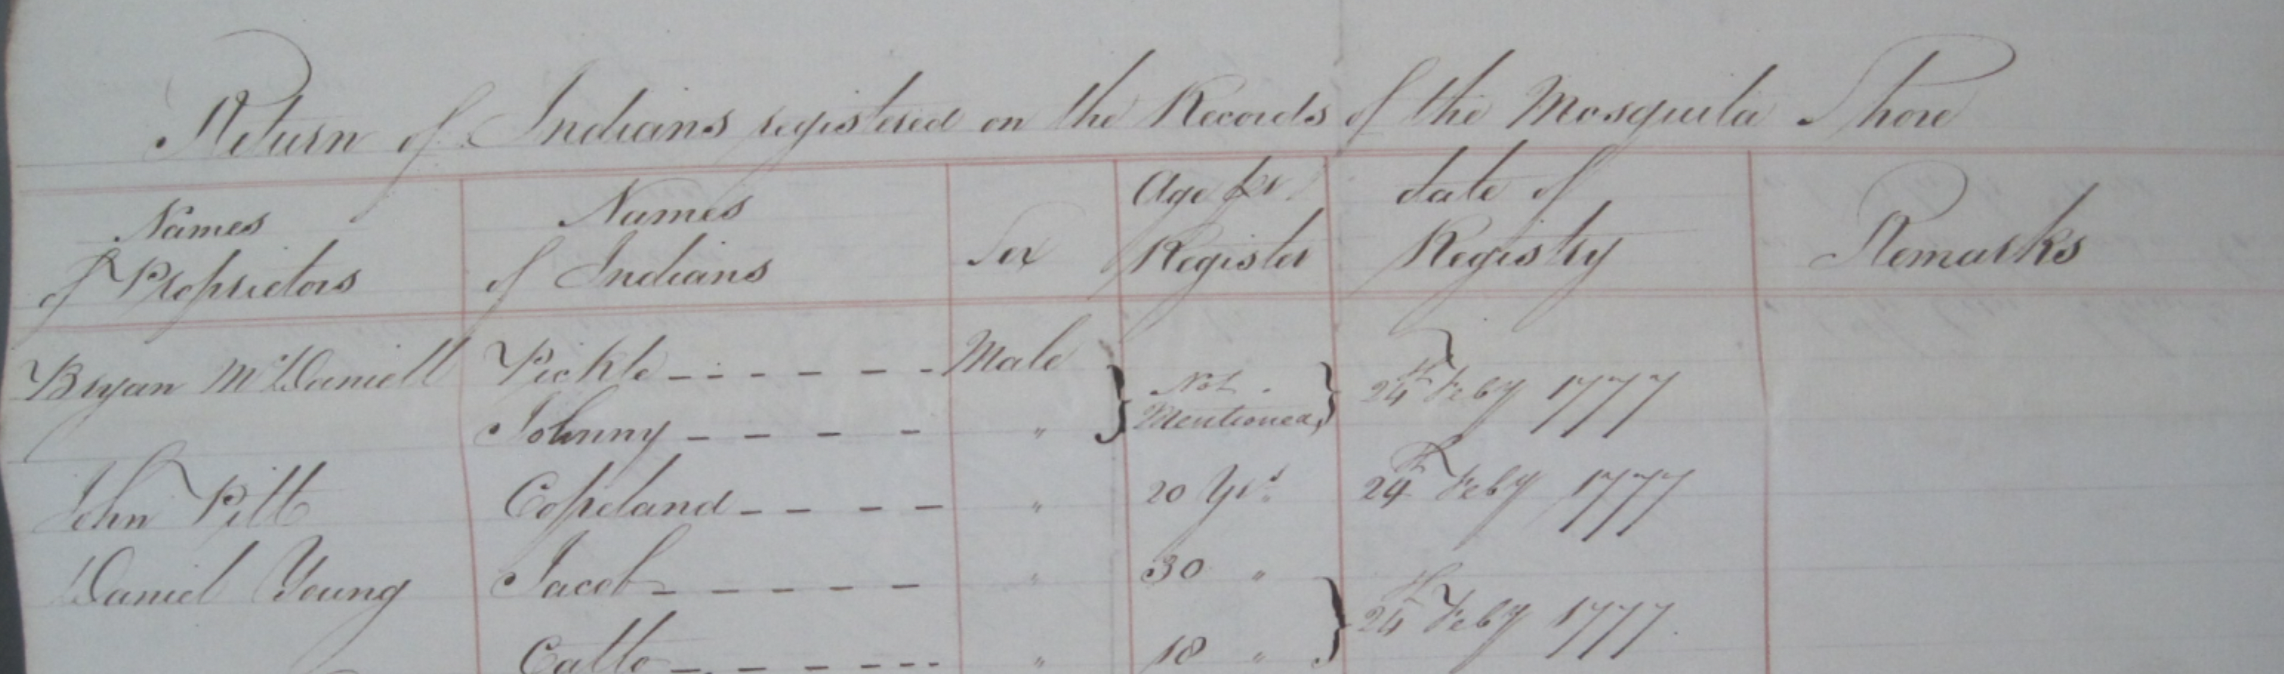 Return of Indians registered on the Records of the Mosquito Shore
Names of Proprietors | Names of Indians | Sex | Age pr. Register | date of Registry | Remarks
Bryan McDaniell | Pickle | Male | Not Mentioned | 24th Feby 1777
Johnny | "
John Pitt | Copeland | " | 20 Yrs. | 24th Feby 1777
Daniel Young | Jacob | " | 30 " | 24th Feby 1777
Catto | " | 18 "